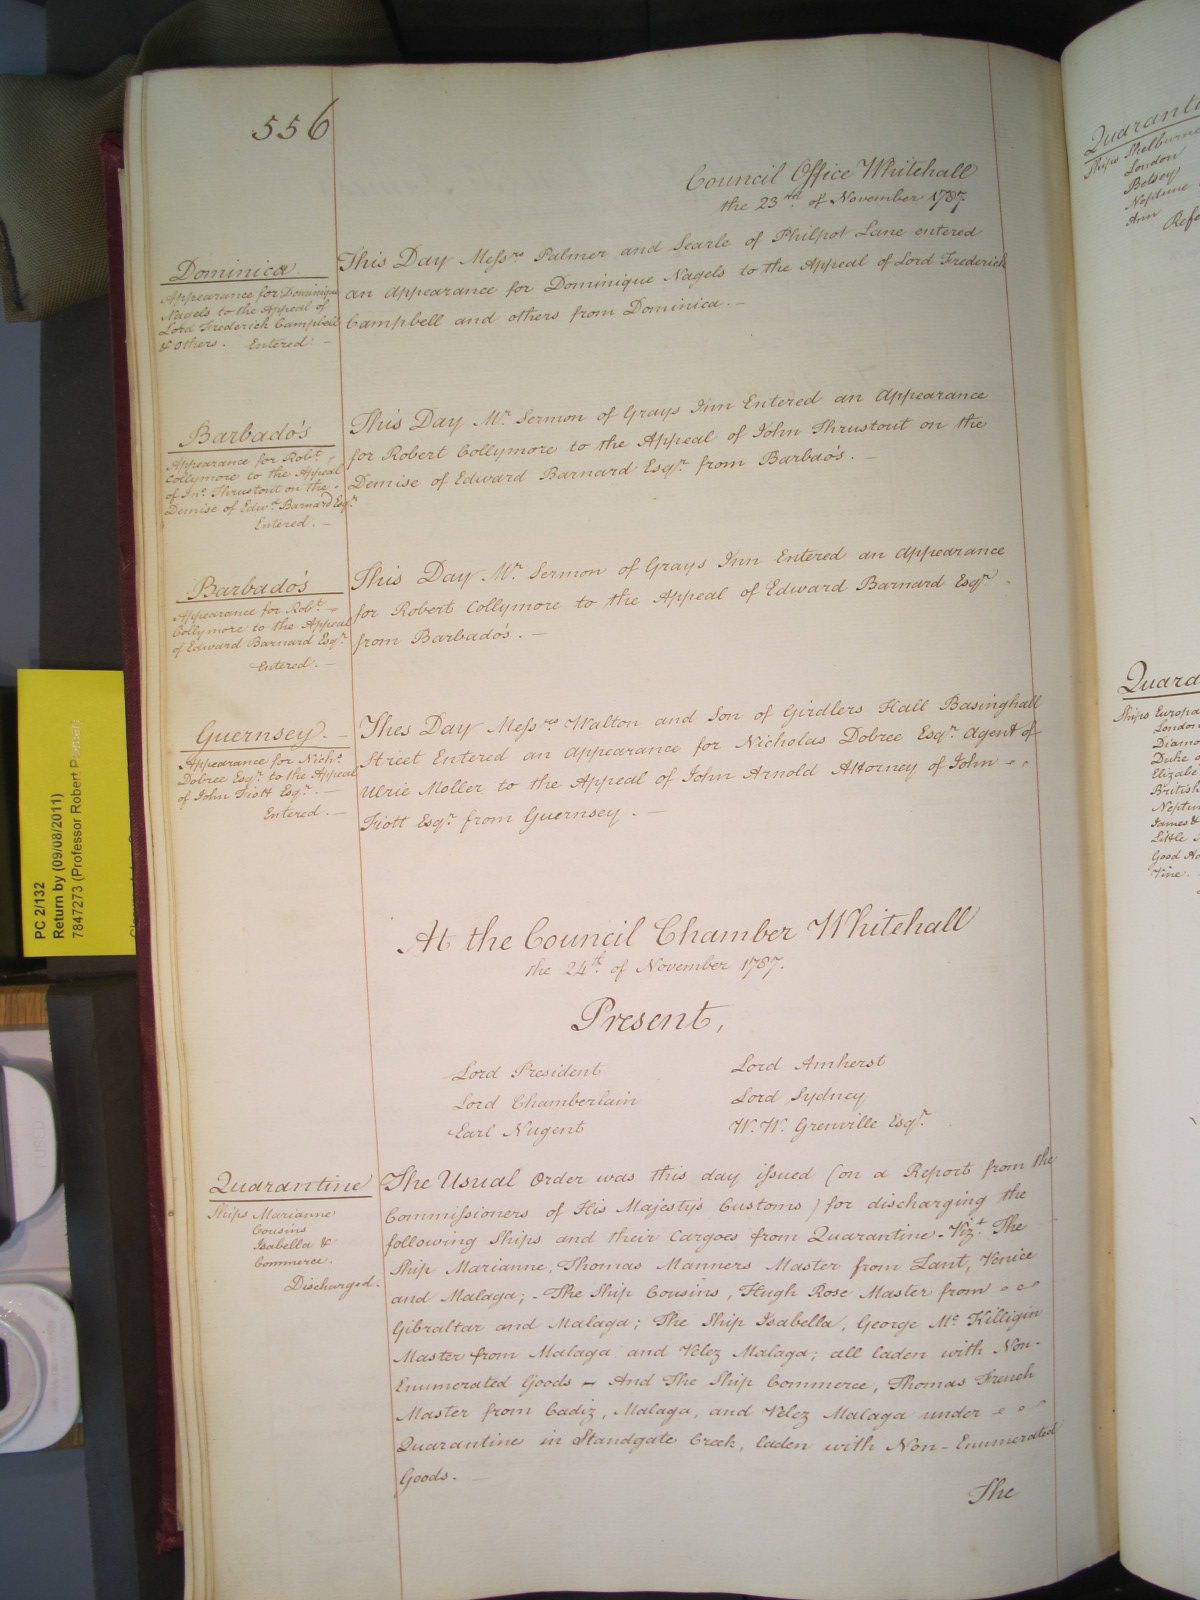 556
Council Office Whitehall
the 23rd. of November 1787
Dominica
Appearance for Dominique
Nagels to the Appeal of
Lord Frederick Campbell
& others. Entered. –
This Day Messrs Palmer and Searle of Philpot Lane entered
an Appearance for Dominique Nagels to the Appeal of Lord Frederick
Campbell and others from Dominica. –
Barbado's
Appearance for Robt.
Collymore to the Appeal
of Jno. Thrustout on the
Demise of Edwd. Barnard Esqr.
Entered. –
This Day Mr. Sermon of Grays Inn Entered an Appearance
for Robert Collymore to the Appeal of John Thrustout on the
Demise of Edward Barnard Esqr. from Barbado's. –
Barbado's
Appearance for Robt. –
Collymore to the Appeal
of Edward Barnard Esqr.
Entered. –
This Day Mr. Sermon of Grays Inn Entered an Appearance
for Robert Collymore to the Appeal of Edward Barnard Esqr.
from Barbado's. –
Guernsey. –
Appearance for Nichs.
Dobree Esqr. to the Appeal
of John Fiott Esqr. –
Entered. –
Thes Day Messrs Walton and Son of Girdlers Hall Basinghall
Street Entered an Appearance for Nicholas Dobree Esqr. Agent of
Ulric Moller to the Appeal of John Arnold Attorney of John
Fiott Esqr. from Guernsey. –
At the Council Chamber Whitehall
the 24th. of November 1787.
Present,
Lord President Lord Amherst
Lord Chamberlain Lord Sydney
Earl Nugent W. W. Grenville Esqr.
Quarantine
Ships Marianne
Cousins
Isabella &
Commerce.
Discharged.
The Usual Order was this day issued (on a Report from the
Commissioners of His Majesty's Customs) for discharging the
following Ships and their Cargoes from Quarantine – Vizt. The
Ship Marianne, Thomas Manners Master from Zant, Venice
and Malaga; – The Ship Cousins, Hugh Rose Master from
Gibraltar and Malaga; The Ship Isabella, George Mc. Killigin
Master from Malaga and Velez Malaga; all laden with Non-
Enumerated Goods – And The Ship Commerce, Thomas French
Master from Cadiz, Malaga, and Velez Malaga under
Quarantine in Standgate Creek, laden with Non-Enumerated
Goods. –
The
PC 2/132
Return by (09/08/2011)
7847273 (Professor Robert
Quaranti
Ships Shelburne
London
Betsey
Neptune
Ann
Refe
Quara
Ships Europa
London
Diamo
Duke o
Elizabe
British
Neptun
James &
Little
Good Ho
Vine.